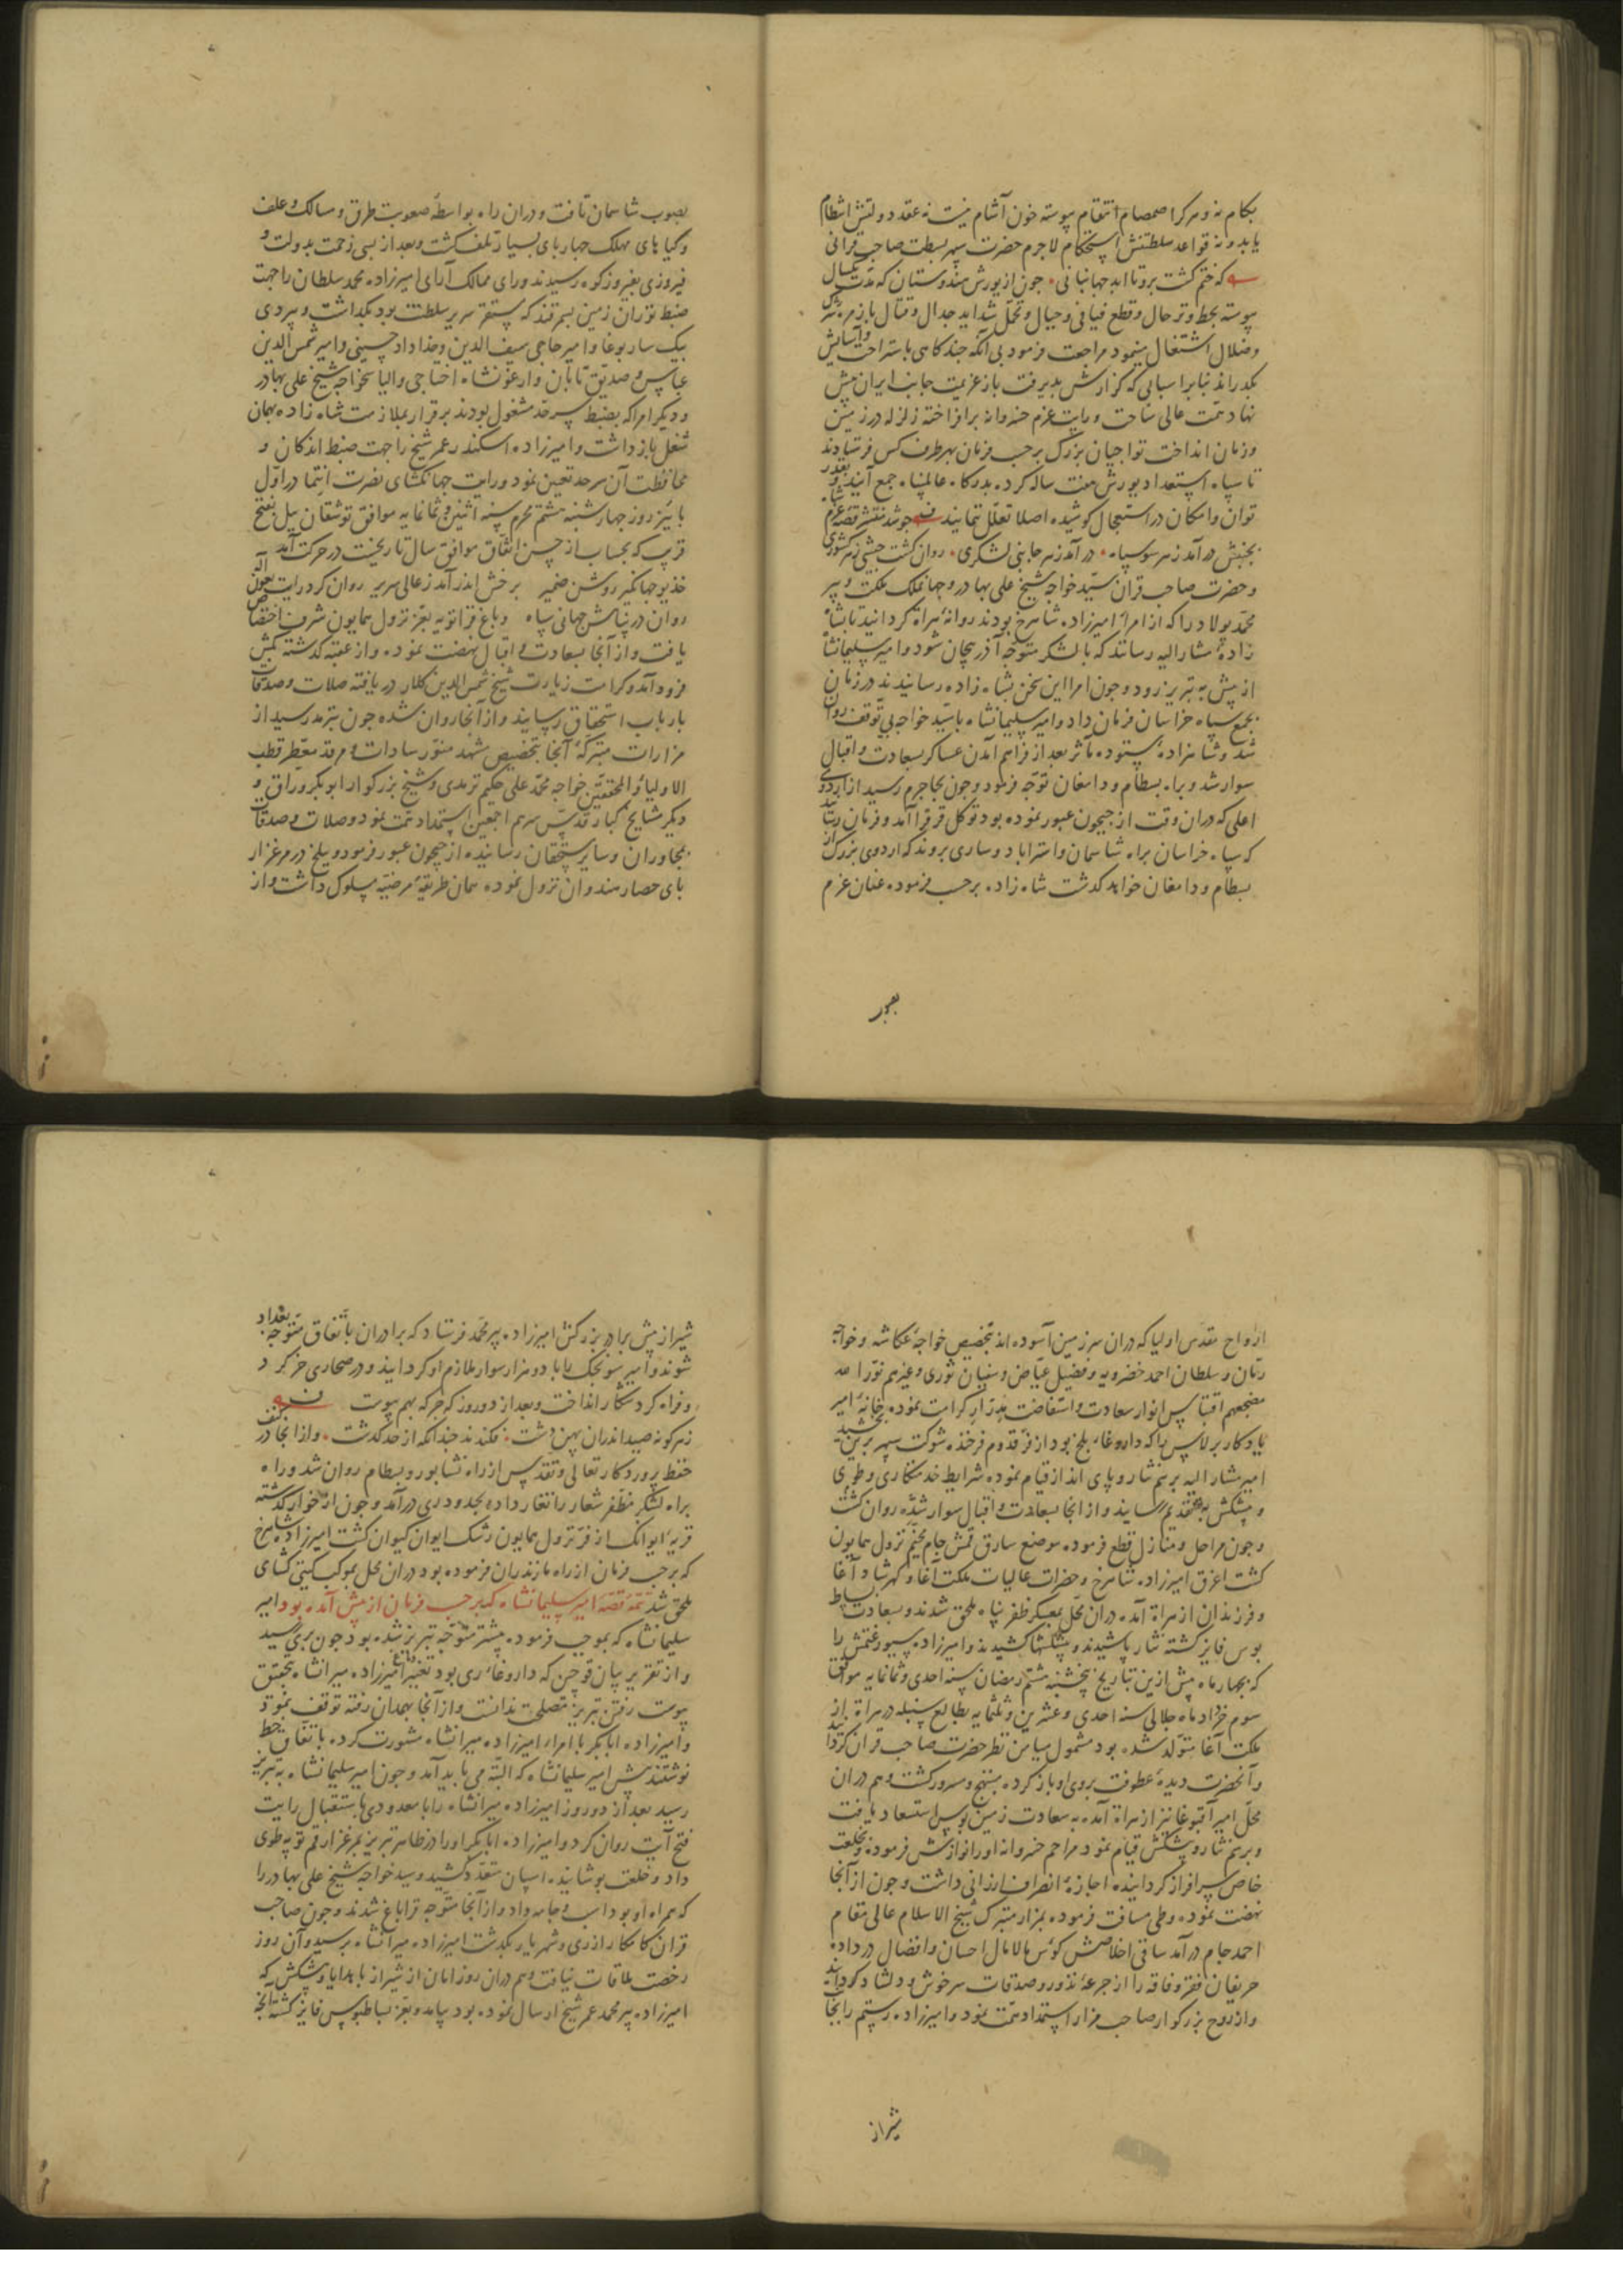 بکام نه و هر کرا صمصام انتقام پیوسته خون آشام نیست نه عقد دولتش انتظام
یابد و نه قواعد سلطنتش استحکام لاجرم حضرت سپهر بسطت صاحب قرانی
که ختم گشت برو تا ابد جهانبانی جون از یورش هندوستان که مدت یکسال
پیوسته بحط و ترحال و قطع فیافی و جبال و تحمل شداید جدال و قتال با زمره شرک
و ضلال اشتغال مینمود مراجعت فرمود بی آنکه جند کاهی باستراحت و آسایش
بکذراند بنابر اسبابی که کزارش بذیرفت باز عزیمت جانب ایران پیش
نهاد همت عالی ساخت و رایت عزم خسروانه برافراخته زلزله در زمین
و زمان انداخت تواجیان بزرک برحسب فرمان بهر طرف کس فرستادند
تا سپاه استعداد یورش هفت ساله کرده بدرکاه عالمپناه جمع آیند و بقدر
توان و امکان در استعجال کوشیده اصلا تعلل ننمایند جو شد منتشر قصه عزم شاه
بجنبش در آمد ز هر سو سپاه در آمد ز هر جانبی لشکری روان کشت جیشی ز هر کشوری
و حضرت صاحب قران سید خواجه شیخ علی بهادر و جهانملک ملکت و پیر
محمد پولاد را که از امراء امیرزاده شاهرخ بودند روانه هراة کردانید تا بشاه
زاده مشارالیه رسانند که با لشکر متوجه آذربیجان شود و امیر سلیمانشاه
از پیش به تبریز رود و جون امرا این سخن بشاه زاده رسانیدند در زمان
بجمع سپاه خراسان فرمان داد و امیر سلیمانشاه با سید خواجه بی توقف روان
شد و شاهزاده ستوده مآثر بعد از فراهم آمدن عساکر بسعادت و اقبال
سوار شد و براه بسطام و دامغان توجه فرمود و جون بجاجرم رسید از اردوی
اعلی که دران وقت از جیحون عبور نموده بود توکل قرقرا آمد و فرمان رسانید
که سپاه خراسان براه شاسمان و استراباد و ساری بروند که اردوی بزرک از
بسطام و دامغان خواهد کذشت شاه زاده برحسب فرموده عنان عزم
بصوب
بصوب شاسمان تافت و دران راه بواسطه صعوبت طرق و مسالک و علف
و کیاه های مهلک جهارپای بسیار تلف کشت و بعد از بسی زحمت بدولت و
فیروزی بفیروزکوه رسیدند و رای ممالک آرای امیرزاده محمد سلطان را جهت
ضبط توران زمین بسمرقند که مستقر سریر سلطنت بود بکذاشت و بیردی
بیک ساربوغا و امیر حاجی سیف الدین و خداداد حسینی و امیر شمس الدین
عباس و صدیق تابان و ارغونشاه اختاجی و الیاسخواجه شیخ علی بهادر
و دیکر امرا که بضبط سرحد مشغول بودند برقرار بملازمت شاه زاده بهمان
شغل بازداشت و امیرزاده اسکندر عمر شیخ را جهت ضبط اندکان و
محافظت آن سرحد تعیین نمود و رایت جهانکشای نصرت انتما در اول
پاییز روز جهارشنبه هشتم محرم سنه اثنین و ثمانمایه موافق توشقان ییل بفتح
قریب که بحساب از حسن اتفاق موافق سال تاریخست در حرکت آمد
خدیو جهانکیر روشن ضمیر برخش اندر آمد ز عالی سریر روان کرد رایت بعون آله
روان در پناهش جهانی سپاه و باغ قراتوبه بعز نزول همایون شرف اختصاص
یافت و از آنجا بسعادت و اقبال نهضت نموده و از عقبه کذشته بکش
فرود آمد و کرامت زیارت شیخ شمس الدین کلار دریافته صلات و صدقات
بارباب استحقاق رسانید و از آنجا روان شده جون بترمد رسید از
مزارات متبرکه آنجا بتخصیص مشهد منور سادات و مرقد معطر قطب
الاولیاء المحققین خواجه محمد علی حکیم ترمدی و شیخ بزرکوار ابوبکر وراق و
دیکر مشایخ کبار قدس سرهم اجمعین استمداد همت نمود و صلات و صدقات
بمجاوران و سایر مستحقان رسانیده از جیحون عبور فرمود و ببلخ در مرغزار
پای حصار هندوان نزول نموده همان طریقه مرضیه مسلوک داشت و از
ارواح مقدس اولیا که دران سرزمین آسوده اند بتخصیص خواجه عکاشه و خواجه
رمان و سلطان احمد خضرویه و فضیل عیاض و سفیان ثوری و غیرهم نورا لله
مضجعهم اقتباس انوار سعادت و استفاضت مدرار کرامت نموده خانه امیر
یادکار برلاس را که داروغاء بلخ بود از فر قدوم فرخنده شوکت سپهر برین بخشید
امیر مشارالیه برسم نثار و پای انداز قیام نموده شرایط خدمتکاری و طوی
و پیشکش بتقدیم رسانید و از آنجا بسعادت و اقبال سوار شده روان کشت
و جون مراحل و منازل قطع فرموده موضع سارق قمش جام مخیم نزول همایون
کشت اغرق امیرزاده شاهرخ و حضرات عالیات ملکت آغا و کهرشاد آغا
و فرزندان از هراة آمده دران محل بمعسکر ظفر پناه ملحق شدند و بسعادت بساط
بوس فایز کشته نثار پاشیدند و پیشکشها کشیدند و امیرزاده سیورغتمش را
که بجهار ماه پیش ازین بتاریخ پنجشنبه هشتم رمضان سنه احدی و ثمانمایه موافق
سوم خرداد ماه جلالی سنه احدی و عشرین و ثلثمایه بطالع سنبله در هراة از
ملکت آغا متولد شده بود مشمول میامن نظر حضرت صاحب قران کردانید
و آنحضرت دیده عطوفت بروی او باز کرده مبتهج و مسرور کشت و هم دران
محل امیر آقبوغا نیز از هراة آمده به سعادت زمین بوس استسعاد یافت
و برسم نثار و پیشکش قیام نمود مراحم خسروانه او را نوازش فرموده بخلعت
خاص سرافراز کردانیده اجازه انصراف ارزانی داشت و جون از آنجا
نهضت نموده و طی مسافت فرموده بمزار متبرک شیخ الاسلام عالی مقام
احمد جام در آمد ساقی اخلاصش کوس مالامال احسان و افضال در داده
حریفان فقر و فاقه را از جرعه نذور و صدقات سرخوش و دلشاد کردانید
و از روح بزرکوار صاحب مزار استمداد همت نمود و امیرزاده رستم را بجانب
شیراز
شیراز پیش برادر بزرکش امیرزاده پیرمحمد فرستاد که برادران باتفاق متوجه بغداد
شوند و امیر سونجک را با دو هزار سوار ملازم او کردانید و در صحاری خرکرد
و فراه کرد شکار انداخت و بعد از دو روز که جرکه بهم پیوست
ز هر کونه صید اندران پهن دشت فکندند جندانکه از حد کذشت و از آنجا در کنف
حفظ پروردکار تعالی و تقدس از راه نشابور و بسطام روان شد و راه
براه لشکر مظفر شعار را تغار داده بحدود ری در آمد و جون از خوار کذشته
قریه ایوانک از فر نزول همایون رشک ایوان کیوان کشت امیرزاده شاهرخ
که برحسب فرمان از راه مازندران فرموده بود دران محل بموکب کیتی کشای
ملحق شد تتمه قصه امیر سلیمانشاه که برحسب فرمان از پیش آمده بود امیر
سلیمانشاه که بموجب فرموده پیشتر متوجه تبریز شده بود جون بری رسید
و از تقریر بیان قوجین که داروغاء ری بود تغییر دماغ امیرزاده میرانشاه بتحقیق
پیوست رفتن تبریز مصلحت ندانست و از آنجا بهمدان رفته توقف نمود
و امیرزاده ابابکر با امراء امیرزاده میرانشاه مشورت کرده باتفاق خط
نوشتند پیش امیر سلیمانشاه که البته می باید آمد و جون امیر سلیمانشاه به تبریز
رسید بعد از دو روز امیرزاده میرانشاه را با معدودی باستقبال رایت
فتح آیت روان کرد و امیرزاده ابابکر او را در ظاهر تبریز بمرغزار قم توپه طوی
داد و خلعت پوشانیده اسپان متعدد کشید و سید خواجه شیخ علی بهادر را
که همراه او بود اسب و جامه داد و از آنجا متوجه قراباغ شدند و جون صاحب
قران کامکار از ری و شهریار بکذشت امیرزاده میرانشاه برسید و آن روز
رخصت ملاقات نیافت و هم دران روز ایمان از شیراز با هدایا و پیشکش که
امیرزاده پیرمحمد عمر شیخ ارسال نموده بود بیامد و بعز بساطبوس فایز کشته آنچه